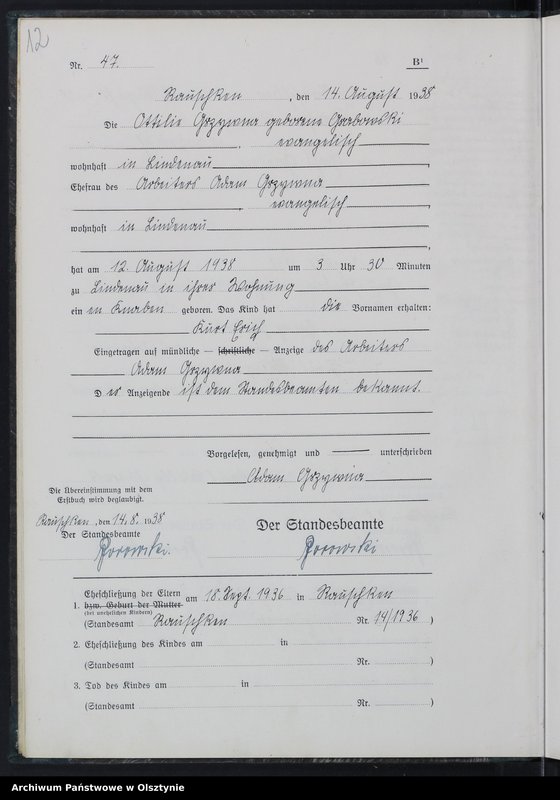 12
Nr. 47. B¹
Rauschken, den 14. August 1938
Die Ottilie Grzywna geborene Grabowski
, evangelisch,
wohnhaft in Lindenau,
Ehefrau des Arbeiters Adam Grzywna
, evangelisch,
wohnhaft in Lindenau
,
hat am 12. August 1938 um 3 Uhr 30 Minuten
zu Lindenau in ihrer Wohnung
ein en Knaben geboren. Das Kind hat die Vornamen erhalten:
Kurt Erich
Eingetragen auf mündliche — schriftliche — Anzeige des Arbeiters
Adam Grzywna
D er Anzeigende ist dem Standesbeamten bekannt.
Vorgelesen, genehmigt und unterschrieben
Adam Grzywna
Die Übereinstimmung mit dem
Erstbuch wird beglaubigt.
Rauschken, den 14. 8. 1938
Der Standesbeamte
Der Standesbeamte
1. Eheschließung der Eltern
bzw. Geburt der Mutter
(bei unehelichen Kindern)
am 18. Sept. 1936 in Rauschken
(Standesamt Rauschken Nr. 14/1936)
2. Eheschließung des Kindes am in
(Standesamt Nr. )
3. Tod des Kindes am in
(Standesamt Nr. )
Archiwum Państwowe w Olsztynie